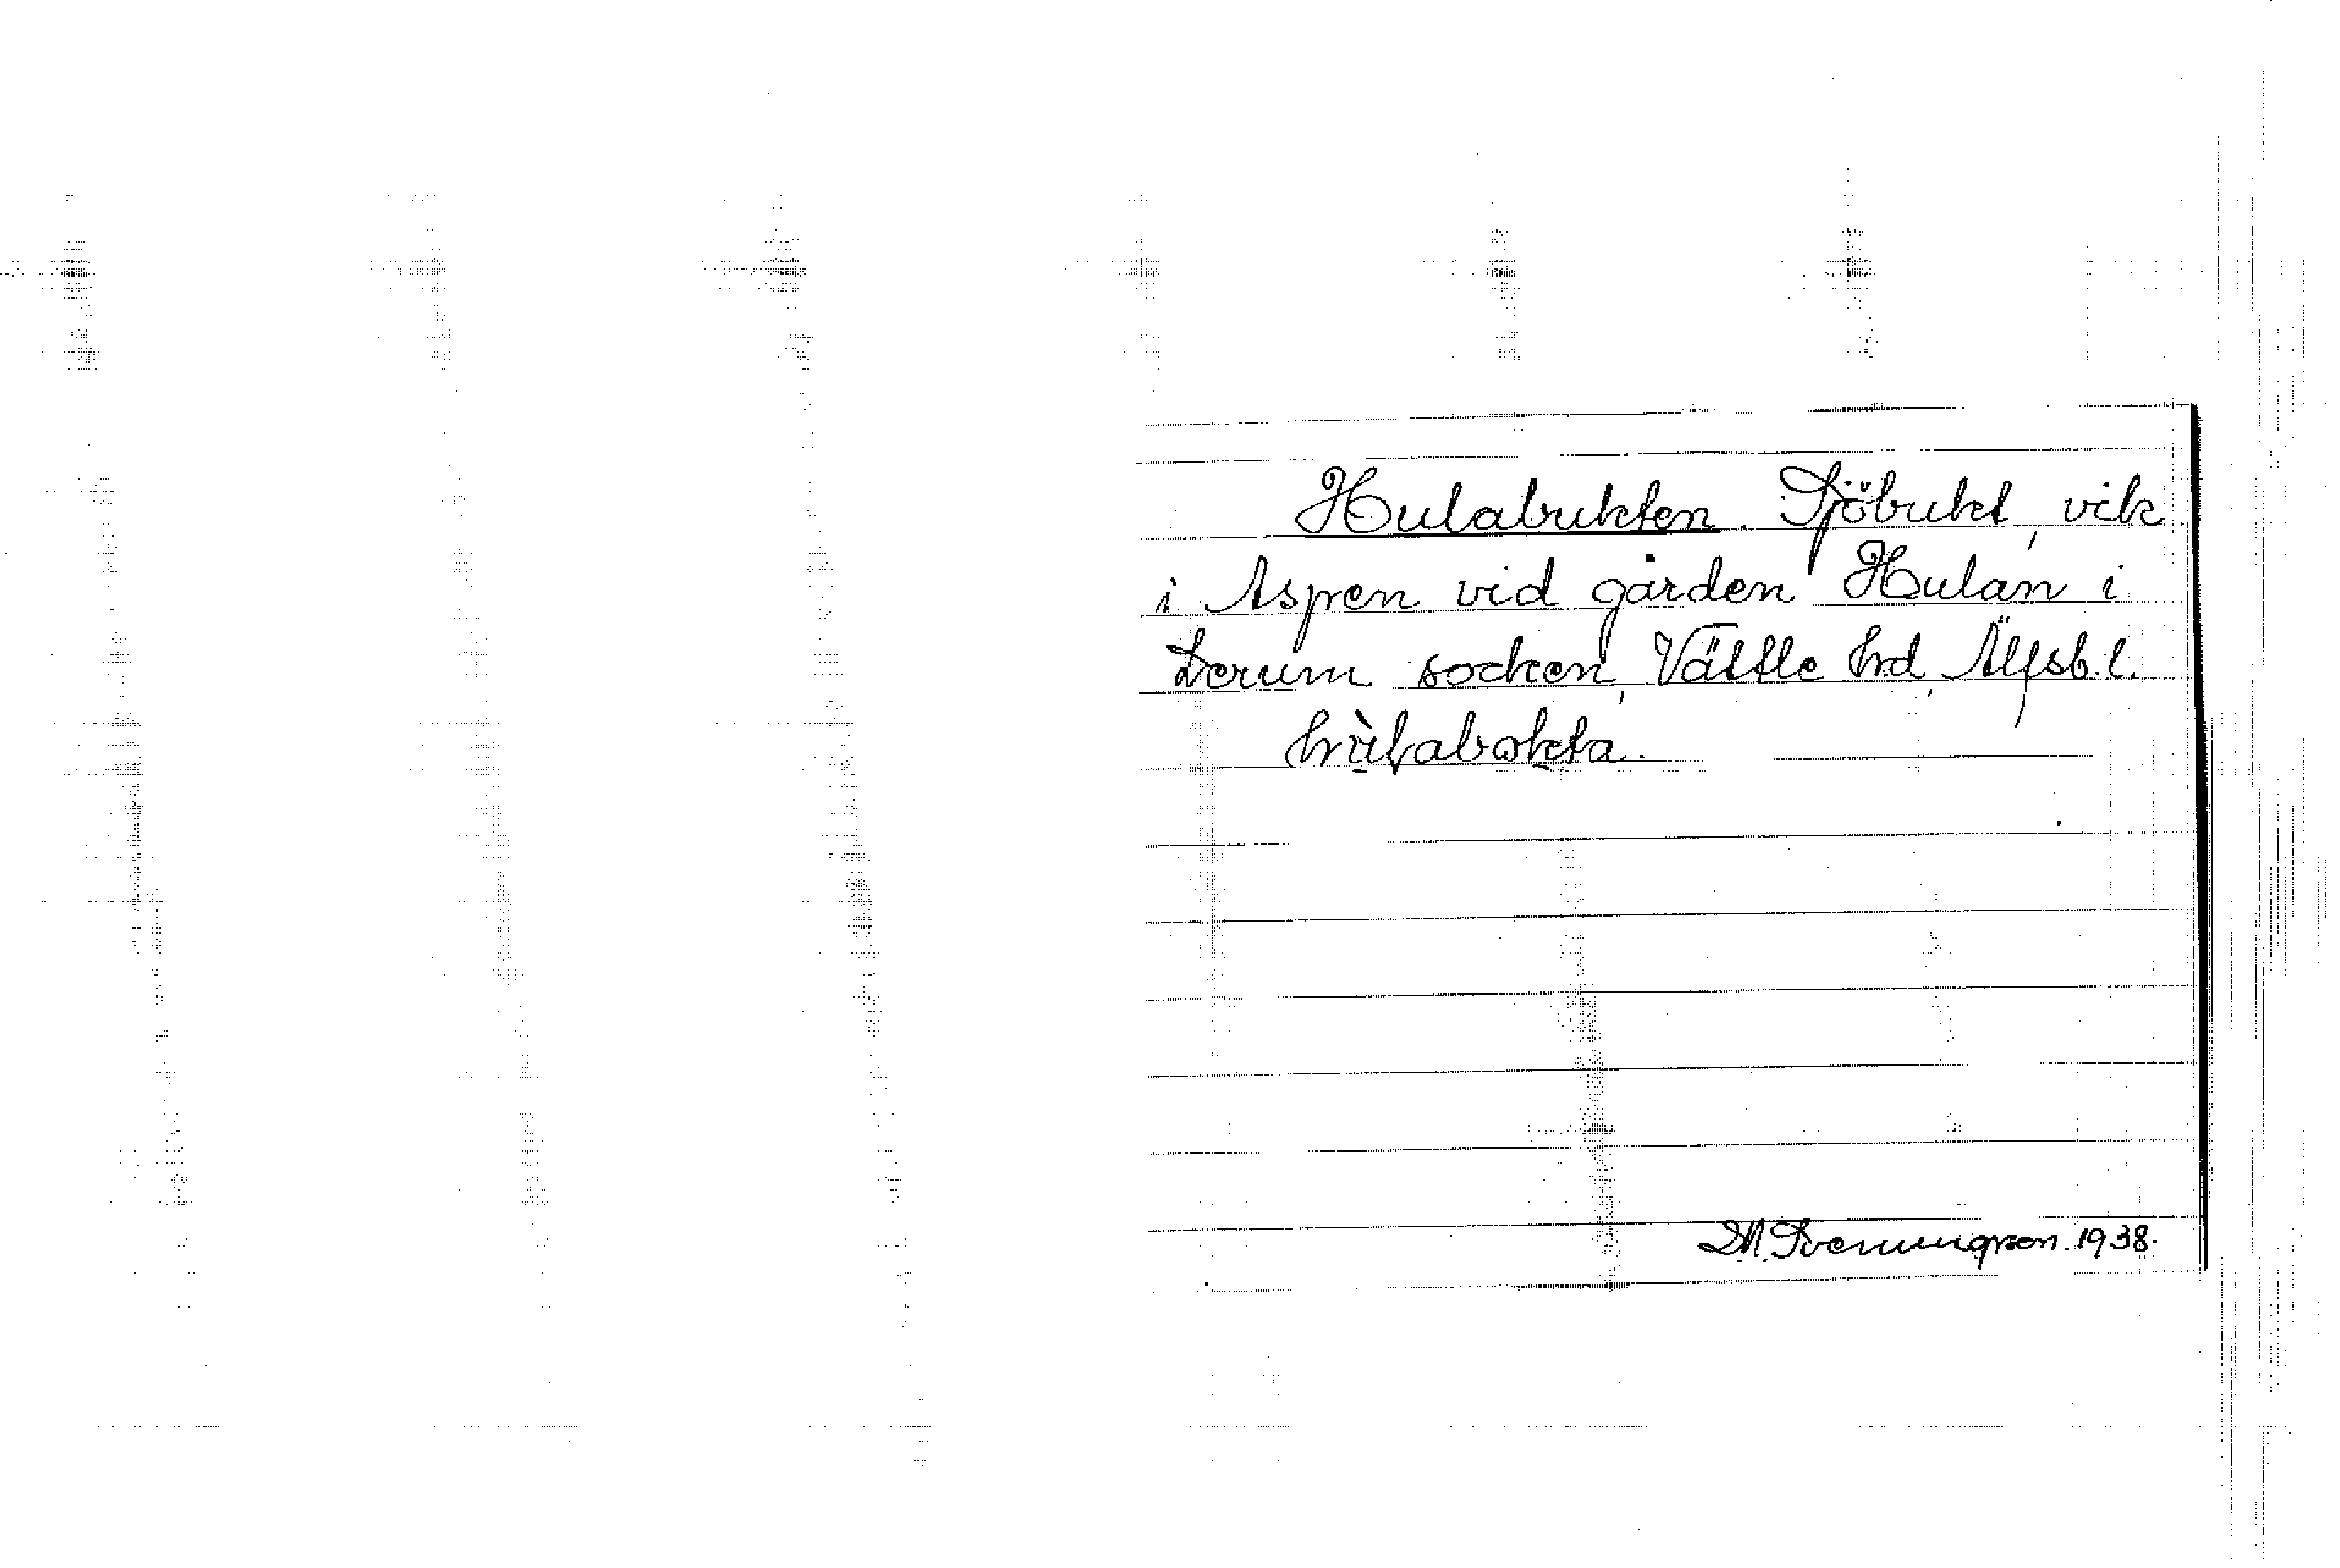 Hulabukten. Sjöbukt, vik
i Aspen vid gården Hulan i
Lerum socken, Vättle hd, Älfsb. l.
M. Svenungson. 1938.